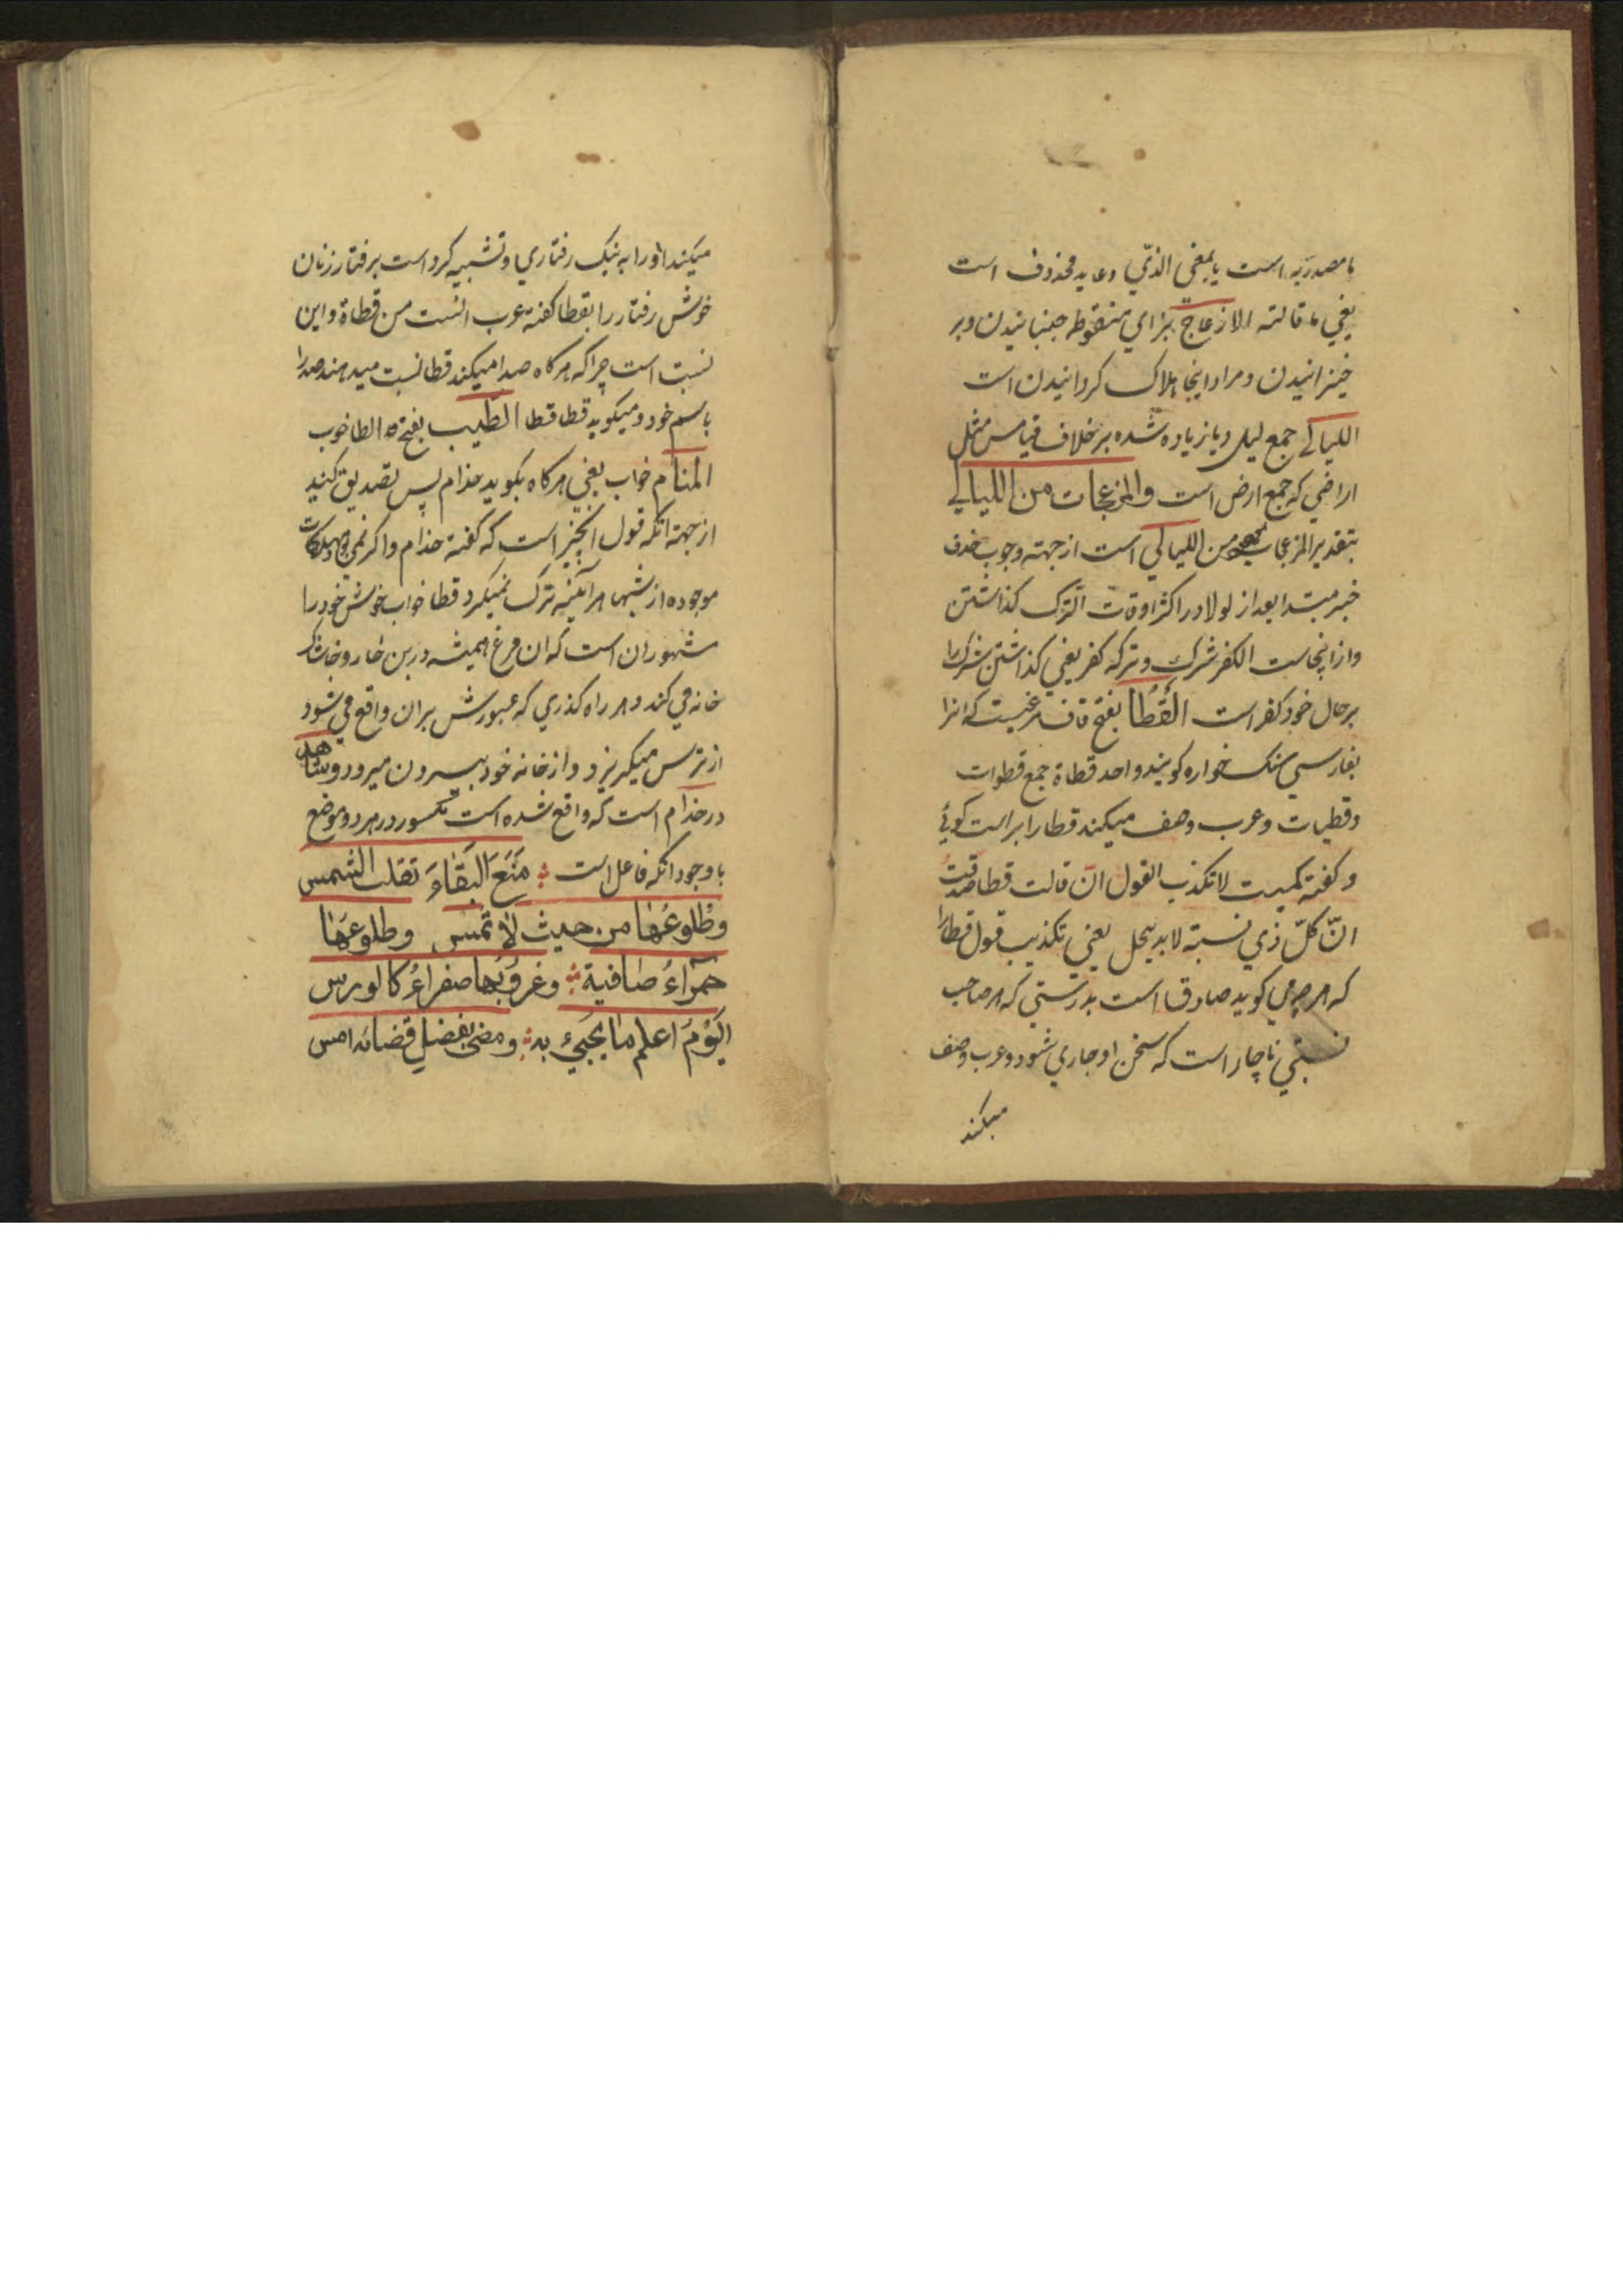 یا مصدریه است یا بمعنی الذي و عاید محذوف است
یعني ما قالته الازعاج بزاي منقوطه جنبانیدن و بر
خیزانیدن و مراد اینجا هلاک کردانیدن است
اللیالي جمع لیل و یا زیاده شده بر خلاف قیاس مثل
اراضي که جمع ارض است والمزعجات من اللیالي
بتقدیر المزعجات من اللیالي است از جهته وجوب حذف
خبر مبتدا بعد از لولا در اکثر اوقات الترک کذاشتن
و از اینجاست الکفر شرک و ترکه کفر یعني کذاشتن شرک را
بر حال خود کفر است القَطا بفتح قاف مرغیست که انرا
بفارسي سنک خواره کویند واحد قطاة جمع قطوات
و قطیات و عرب وصف میکند قطا را براست کوئي
و کفته کمیت لا تکذب القول ان قالت قطا صدقت
انّ کلّ ذي نسبته لابد ینحل یعني تکذیب قول قطا را
که هر چه مي کوید صادق است بدرستي که هر صاحب
نسبتي ناچار است که سخن او جاري شود و عرب وصف
میکند
میکند او را به نیک رفتاري و تشبیه کرد است بر فتار زنان
خوش رفتار را بقطا کفته عرب انست من قطاة و این
نسبت است چرا که هر کاه صدا میکند قطا نسبت میدهند صدا را
باسم خود و میکوید قطا قطا الطّیب بفتح الطا خوب
المنام خواب یعني هر کاه بکوید حذام پس تصدیق کنید
از جهته انکه قول انچیز است که کفته حذام و اکر نمي بود مهلکات
موجوده از شبها هر آینه ترک نمیکرد قطا خواب خوش خود را
مشهور ان است که ان مرغ همیشه در بن خار و خاشاک
خانه مي کند و هر راه کذري که عبورش بران واقع مي شود
از ترس میکریزد و از خانه خود بیرون میرود و شاهد
در حذام است که واقع شده است مکسور در هر دو موضع
با وجود انکه فاعل است ؞ مَنَعَ البَقاءَ تقلب الشمس
وطُلوعُها من حیث لا تمس وطلوعُها
حمراءُ صافیة ؞ وغروبُها صفراءُ کالورس
الیَوْمَ اعلم ما یَجيءُ به ؞ ومضی بفضل قضائه امس